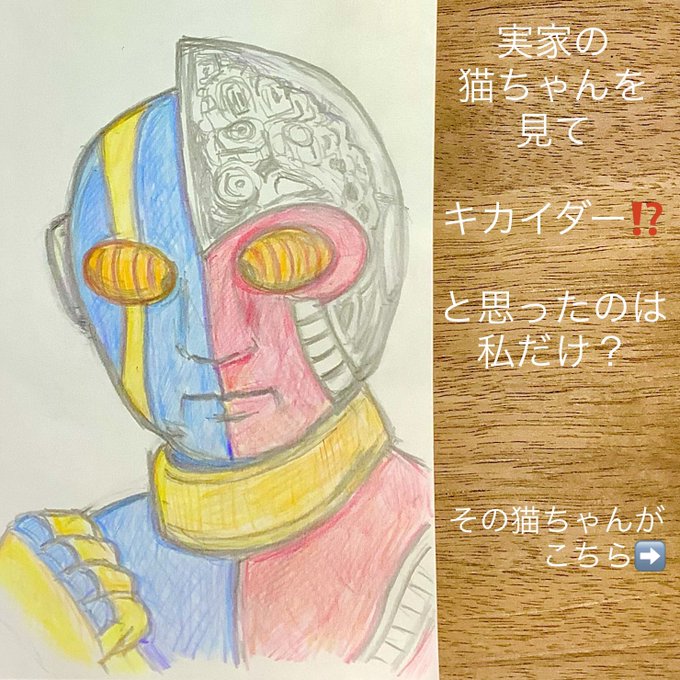 実家の
猫ちゃんを
見て
キカイダー⁉️
と思ったのは
私だけ？
その猫ちゃんが
こちら➡️